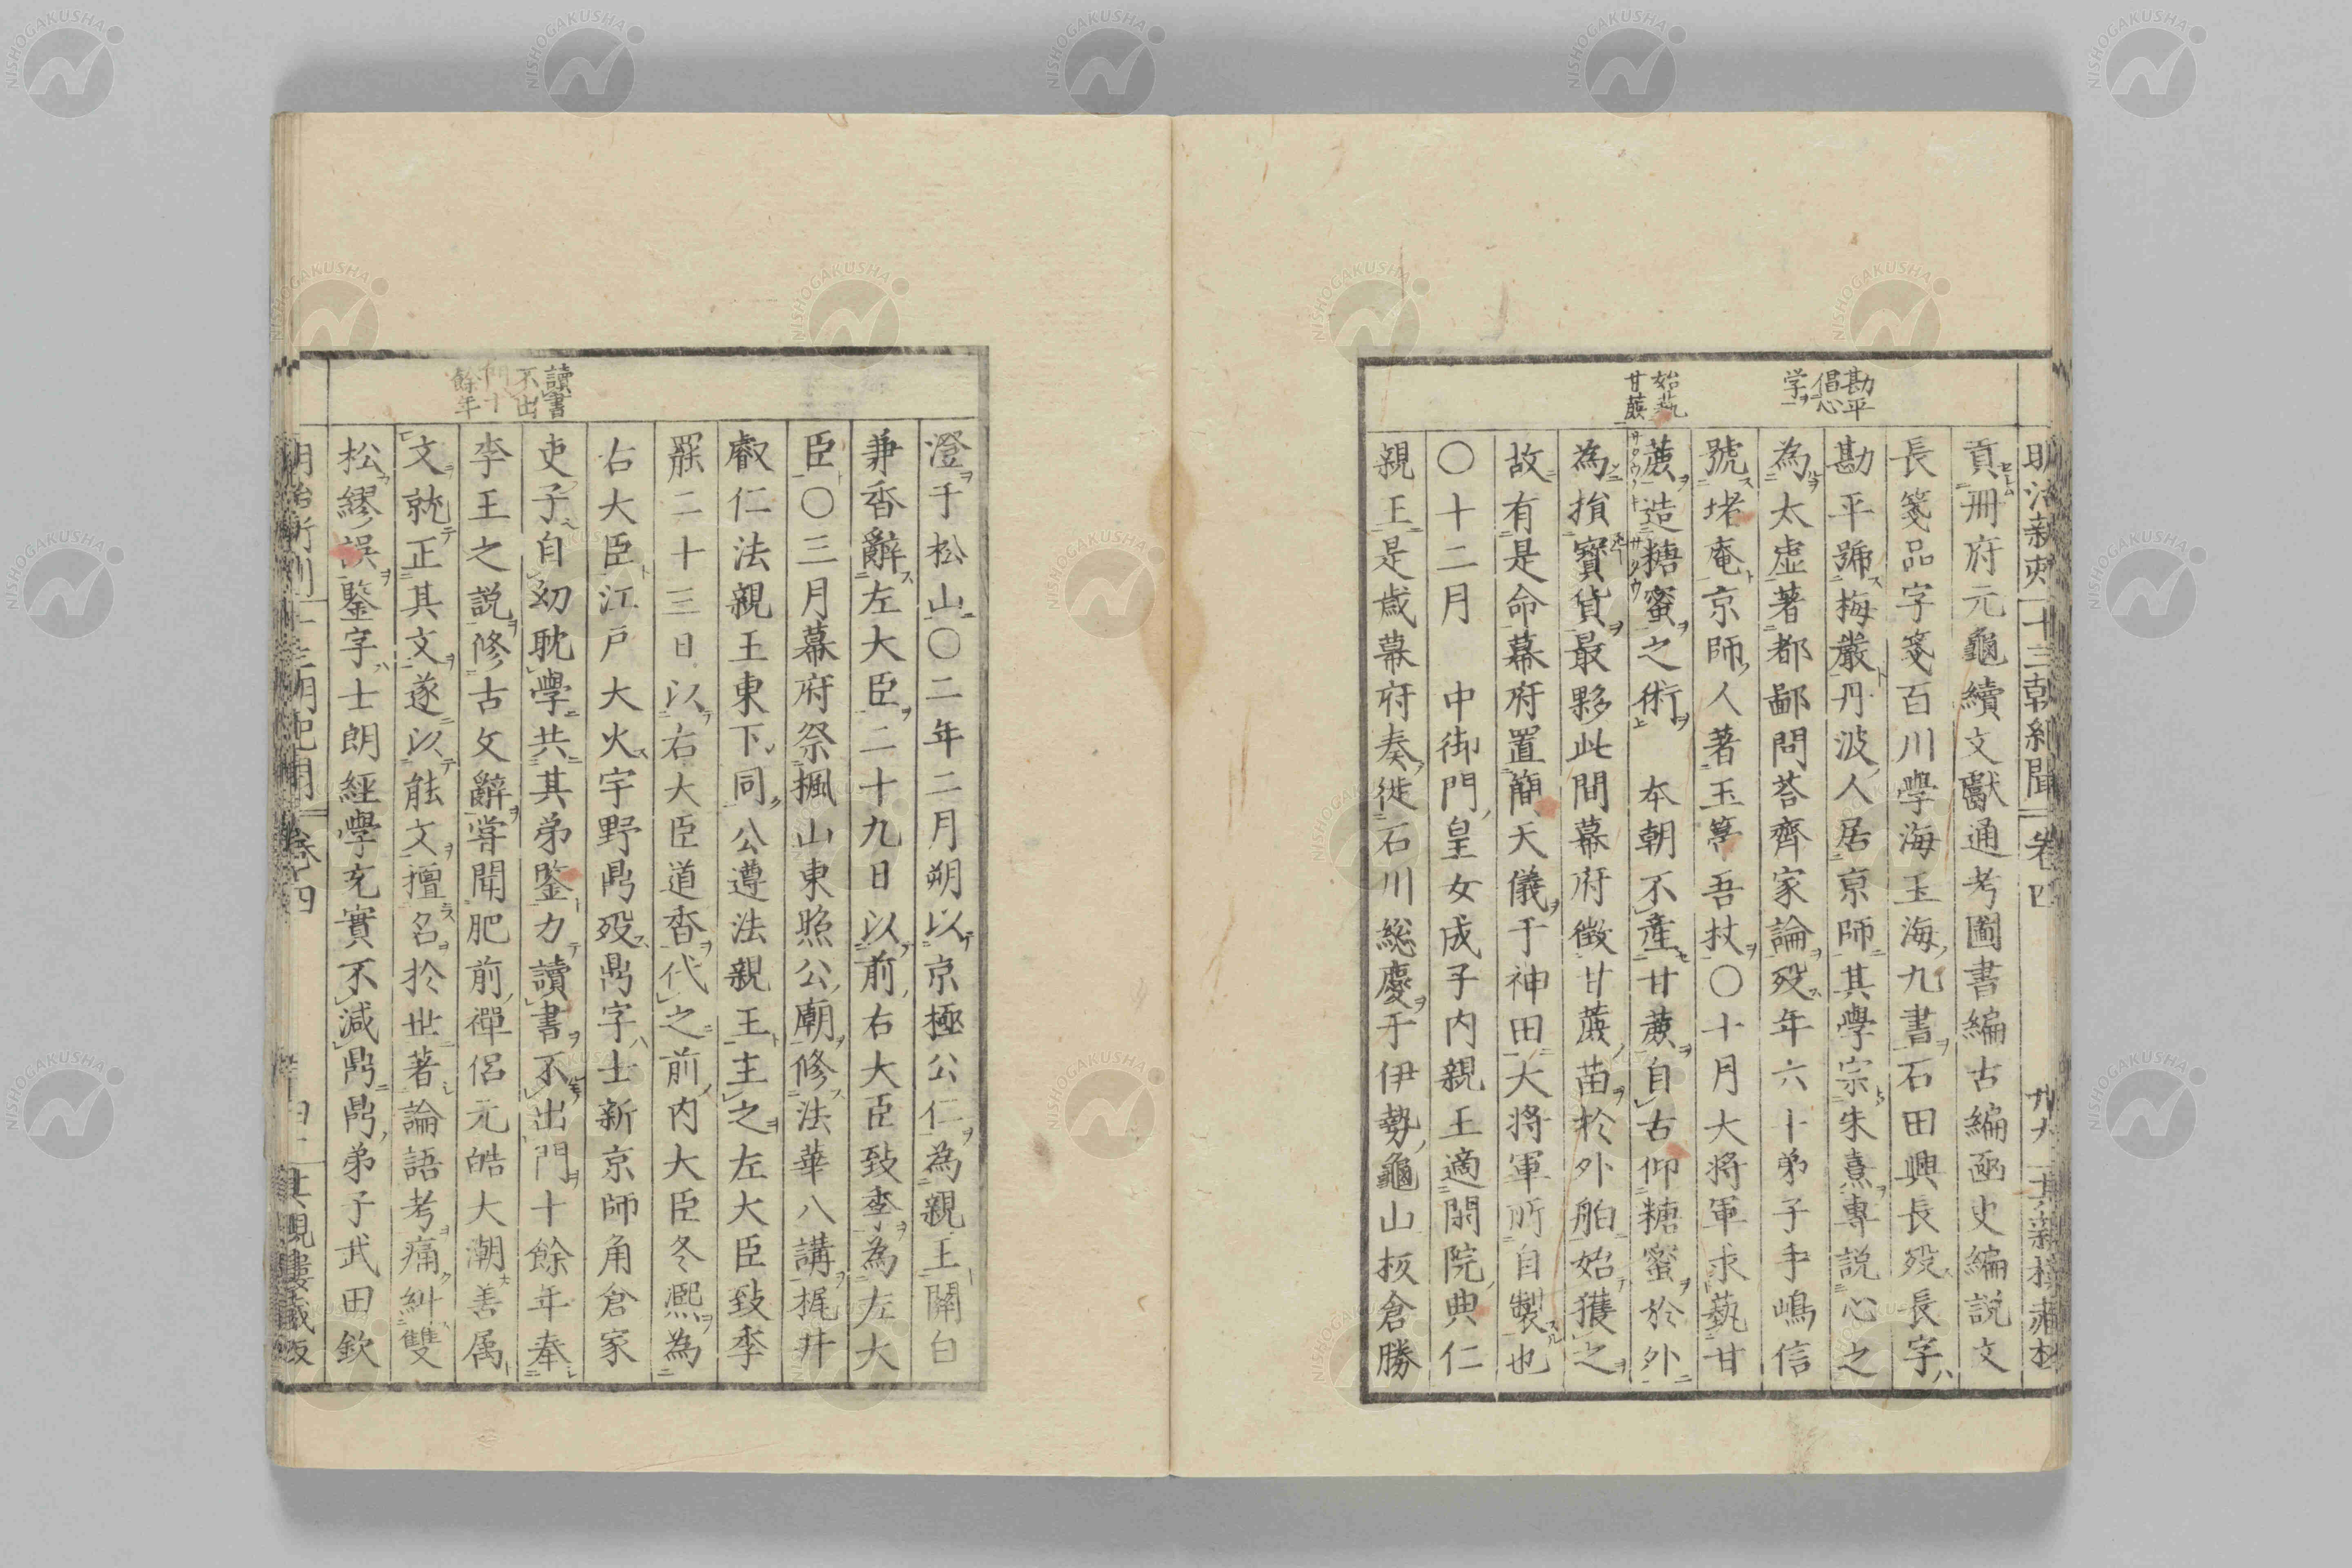 勘平
倡心
学
始藝
甘蔗
貢冊府元龜續文獻通考圖書編古編函史編説文
長箋品字箋百川學海玉海九書石田興長歿長字
勘平號梅巖丹波人居京師其學宗朱熹專説心之
為太虚著都鄙問荅齊家論歿年六十弟子手嶋信
號堵庵京師人著玉篙吾杖〇十月大将軍求藝甘
蔗造糖蜜之術 本朝不産甘蔗自古仰糖蜜於外
為損寳貨最夥此間幕府徵甘蔗苗於外舶始獲之
故有是命幕府置簡天儀于神田大将軍所自製也
〇十二月 中御門皇女成子内親王適閑院典仁
親王是歳幕府奏徙石川総慶于伊勢龜山板倉勝
讀書
不出
門十
餘年
澄于松山〇二年二月朔以京極公仁為親王關白
兼香辭左大臣二十九日以前右大臣致季為左大
臣〇三月幕府祭楓山東照公廟修法華八講梶井
叡仁法親王東下同公遵法親王主之左大臣致季
罷二十三日以右大臣道香代之前内大臣冬熙為
右大臣江戸大火宇野鼎歿鼎字士新京師角倉家
吏子自幼耽學共其弟鑒力讀書不出門十餘年奉
李王之説修古文辭甞聞肥前禪侶元皓大潮善属
文就正其文遂以能文擅名於世著論語考痛糾雙
松繆誤鑒字士朗經學充實不減鼎鼎弟子武田欽